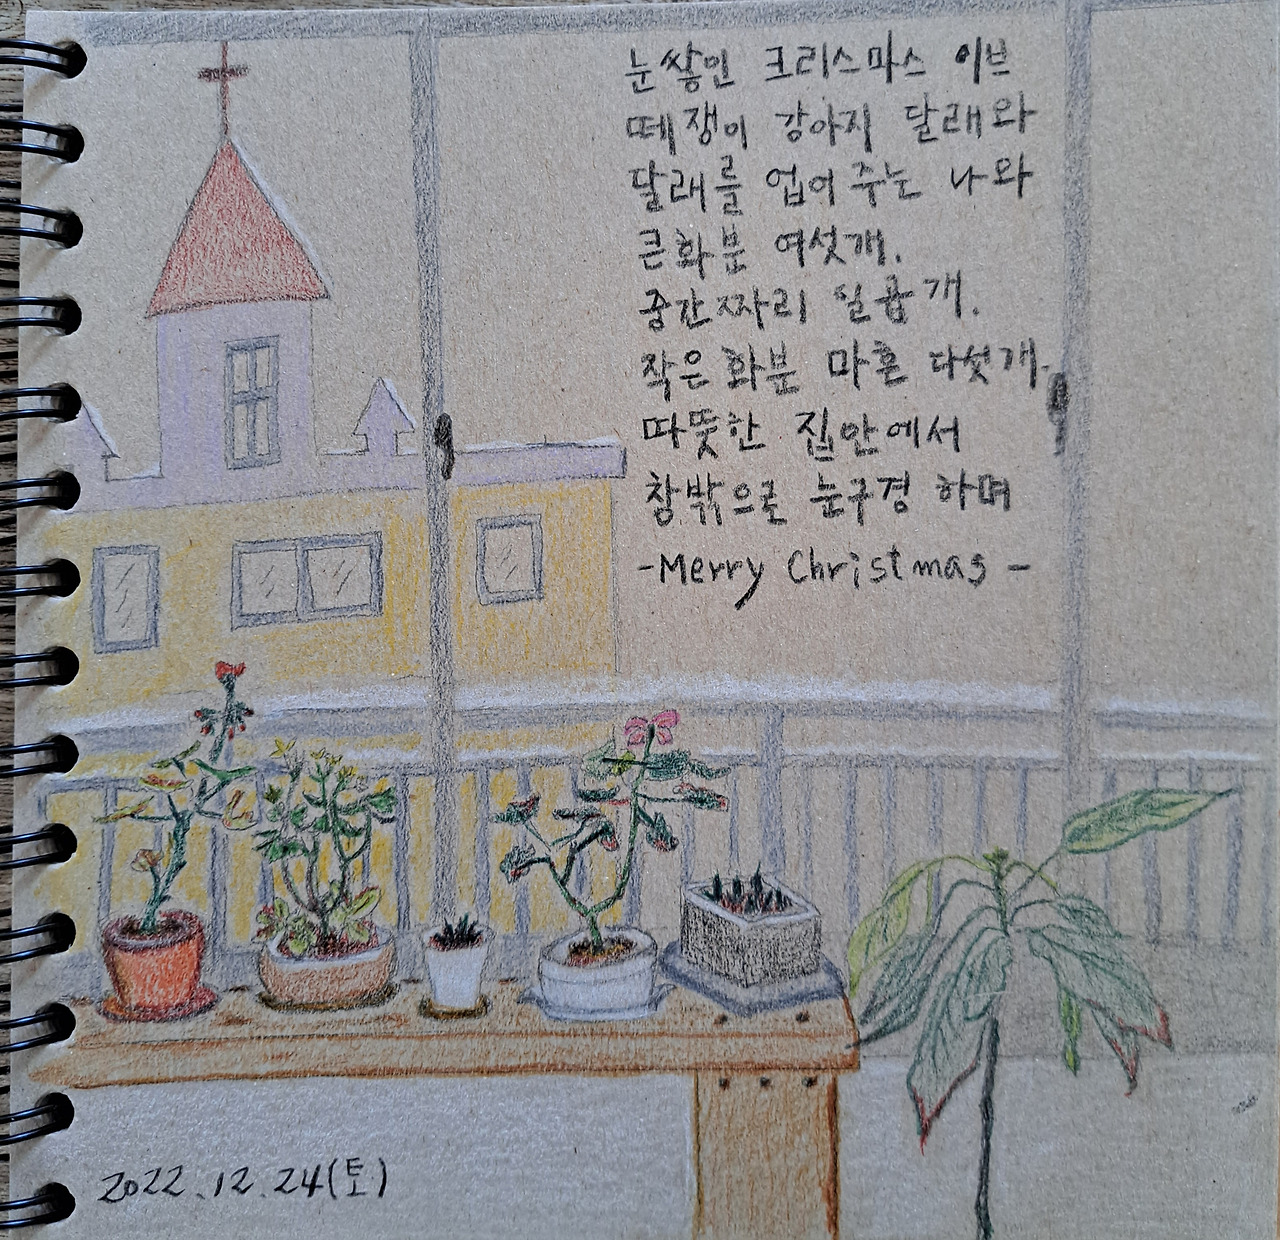 눈쌓인 크리스마스 이브
떼쟁이 강아지 달래와
달래를 업어 주는 나와
큰화분 여섯개.
중간짜리 일곱개.
작은화분 마흔 다섯개.
따뜻한 집안에서
창밖으로 눈구경 하며
-Merry Christmas-
2022.12.24(토)